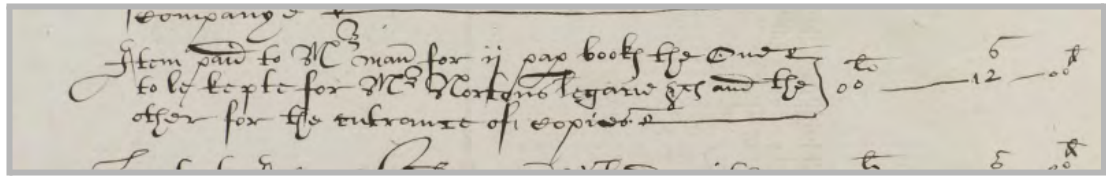 Company
Item paid to Mr man for ij pap bookes the One
to be kepte for Mr Nortons legacie and the
other for the entrance of copies
li s d
00 — 12 — 00
li s d